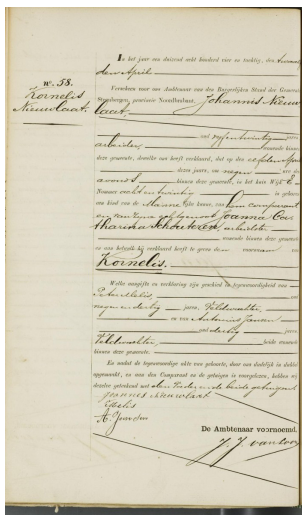 In het jaar een duizend acht honderd vier en tachtig, den
den April
No. 58.
Kornelis
Nieuwlaat.
Verscheen voor ons Ambtenaar van den Burgerlijken Stand der Gemeente
provincie Noordbrabant, Johannes Nieuw
laat,
oud vijfentwintig jaren,
arbeider, wonende binnen
deze gemeente, dewelke ons heeft verklaard, dat op den April
dezes jaars, om negen ure des
avonds, binnen deze gemeente, in het huis Wijk E
Nommer achtentwintig is geboren
een kind van de Mannelijke kunne, van hem comparant
en van zijne echtgenoot Joanna Ca
tharina arbeidster,
wonende binnen deze gemeente
en aan hetwelk hij verklaard heeft te geven den voornaam van
Kornelis.
Welke aangifte en verklaring zijn geschied in tegenwoordigheid van
oud
negenendertig jaren, Veldwachter,
en van Antonius Jansen
oud dertig jaren,
Veldwachter, beide wonende
binnen deze gemeente.
En nadat de tegenwoordige akte van geboorte, door ons dadelijk in dubbel
opgemaakt, en aan den Comparant en de getuigen is voorgelezen, hebben wij
dezelve geteekend met den Vader en de beide getuigen
Joannes Nieuwlaat
A. Jansen
De Ambtenaar voornoemd,